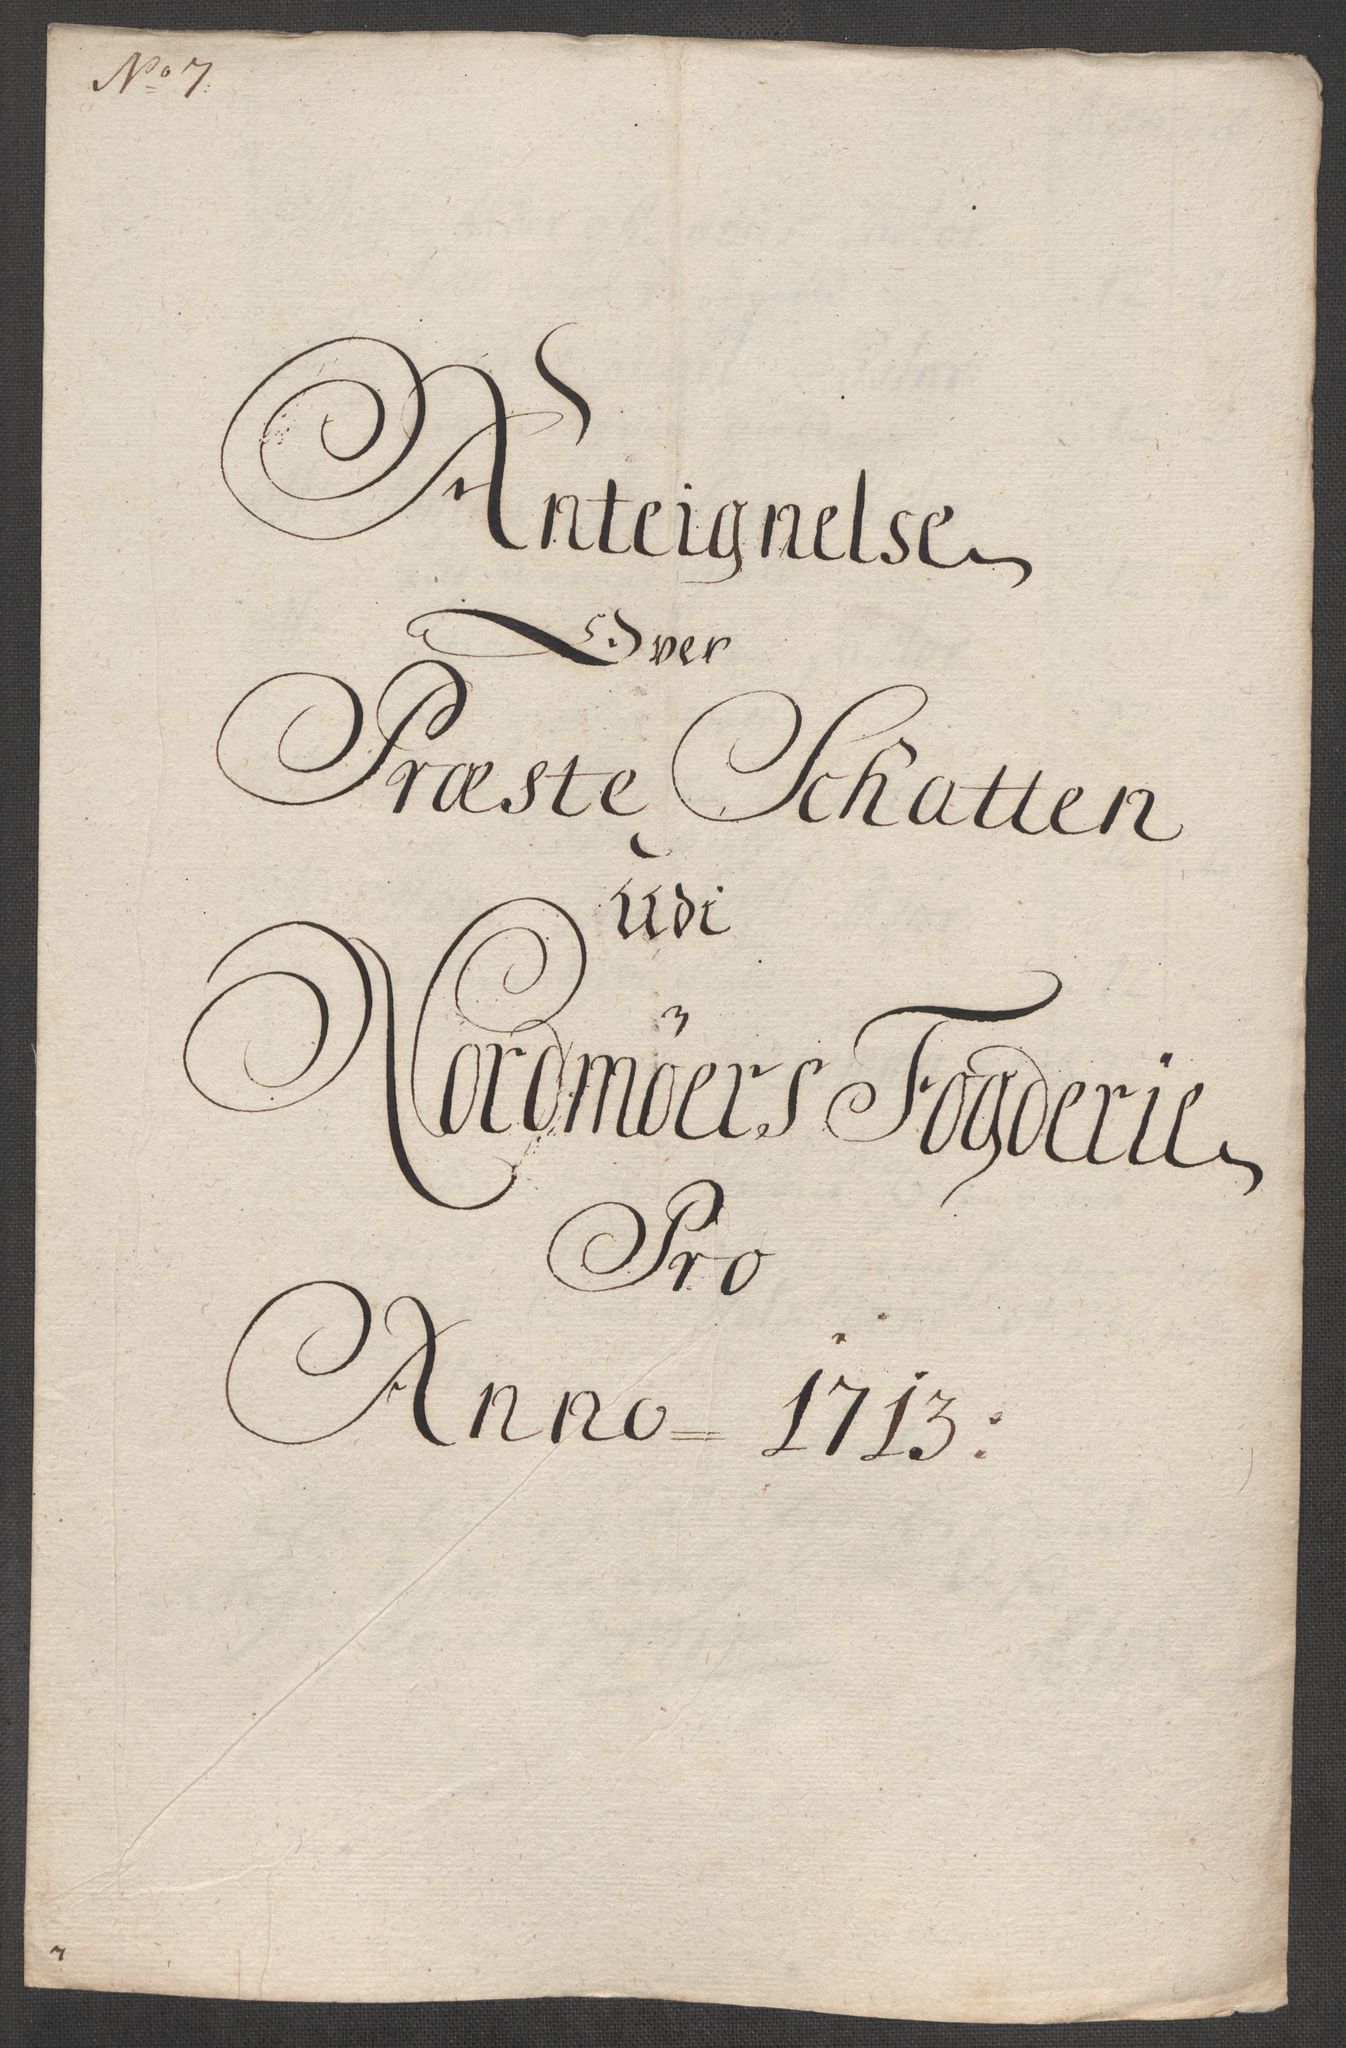 No 7
Anteignelse
Over
Præste Schatten
Udi
Nordmöers Fogderie
Pro
Anno = 1713:
7